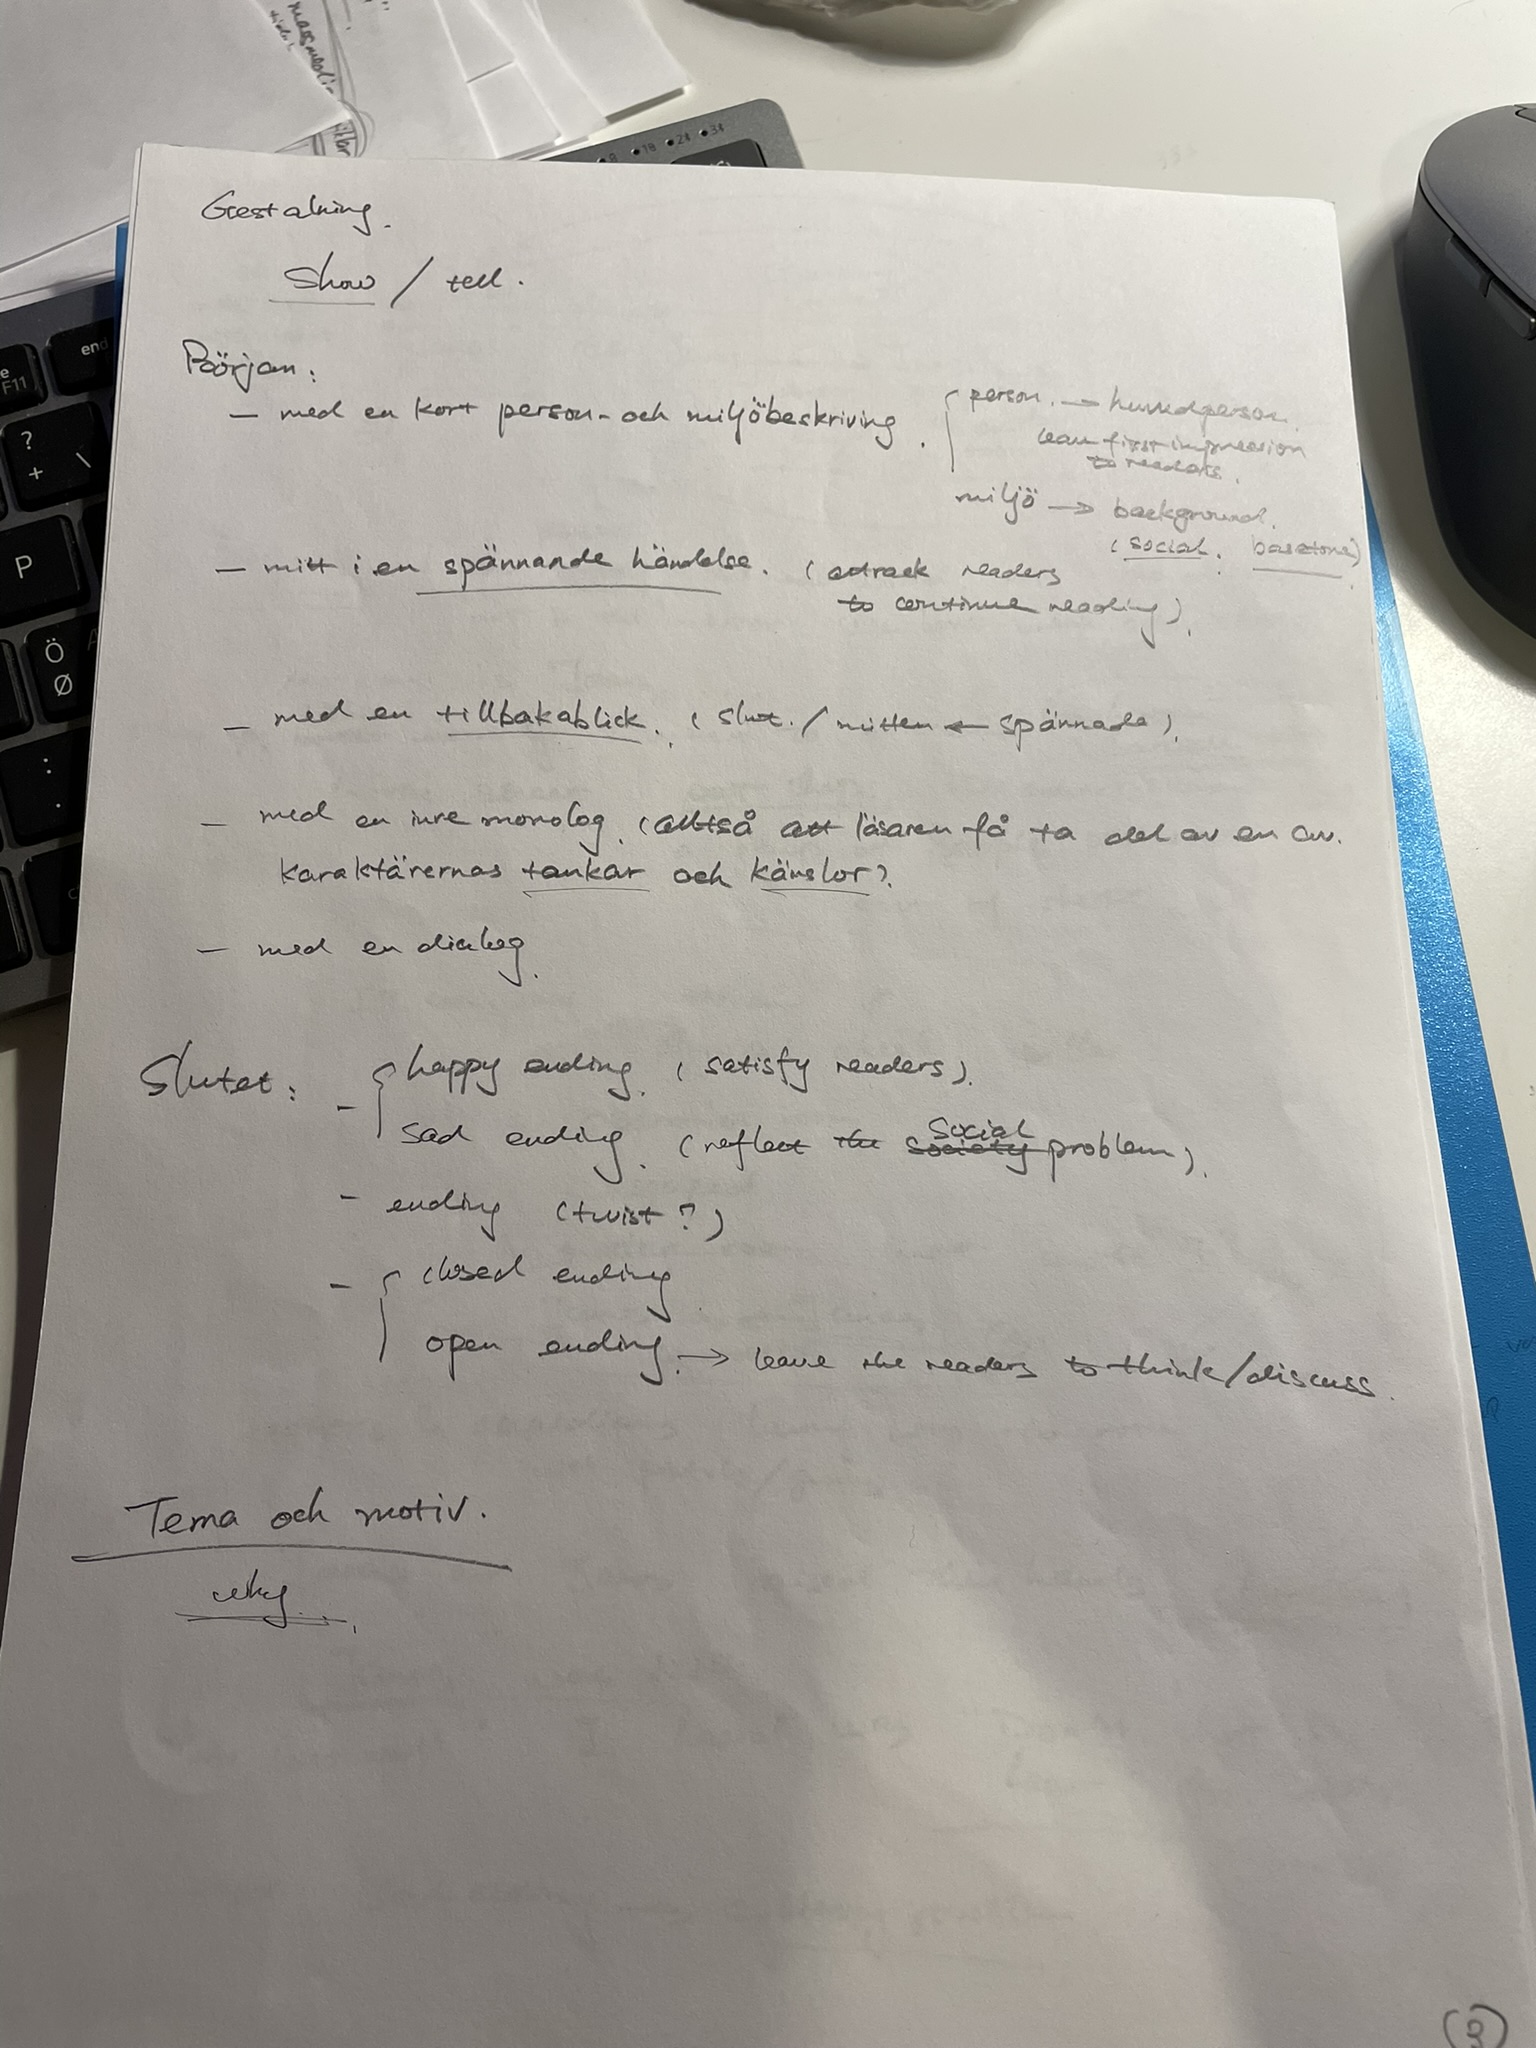 massmedi
Gestalning.
Show / tell.
Början:
- med en kort person- och miljöbeskriving.
person. → huvudperson.
lean first impression
to readers.
miljö → background.
(social. basetone)
- mitt i en spännande händelse. (attrack readers
to continue reading).
- med en tillbakablick. (slut. / mitten ← spännade).
- med en inre monolog. (alltså att läsaren få ta del av en av.
karaktärernas tankar och känslor).
- med en dialog.
Slutet:
- happy ending. (satisfy readers).
sad ending. (reflect the society social problem).
- ending (twist?)
- closed ending.
open ending. → leave the readers to think/discuss.
Tema och motiv.
why.
3
end
F11
?
+ \
P
Ö
Ø
:
.